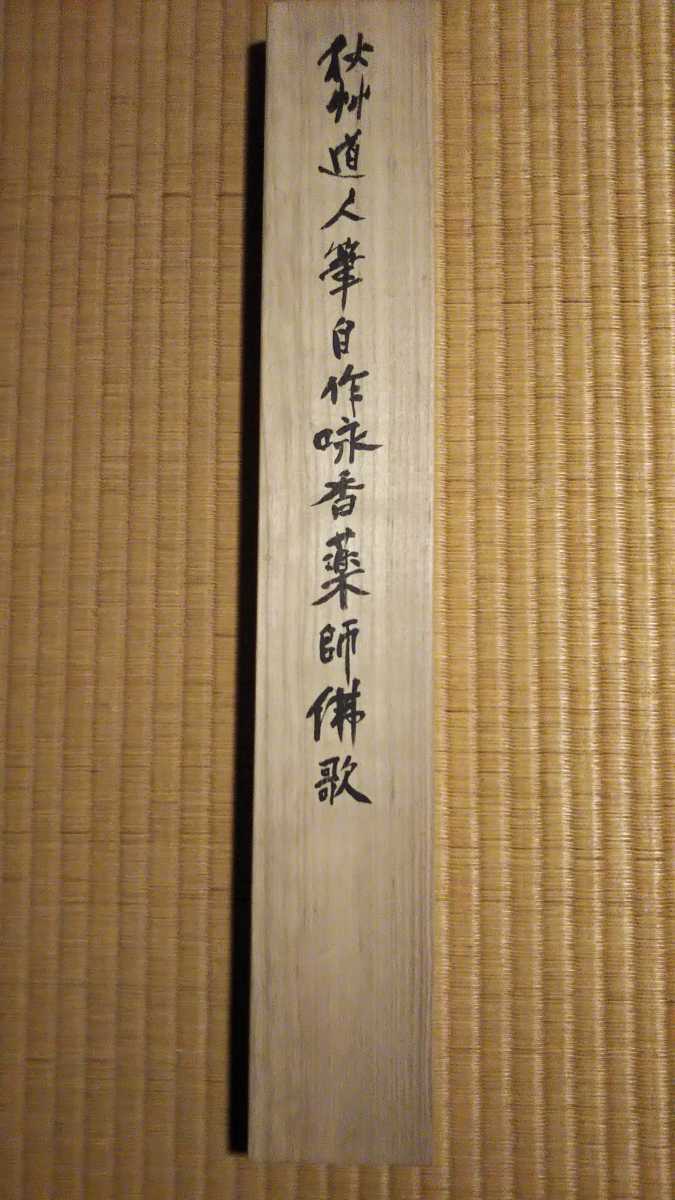 秋艸道人筆自作咏香薬師佛歌